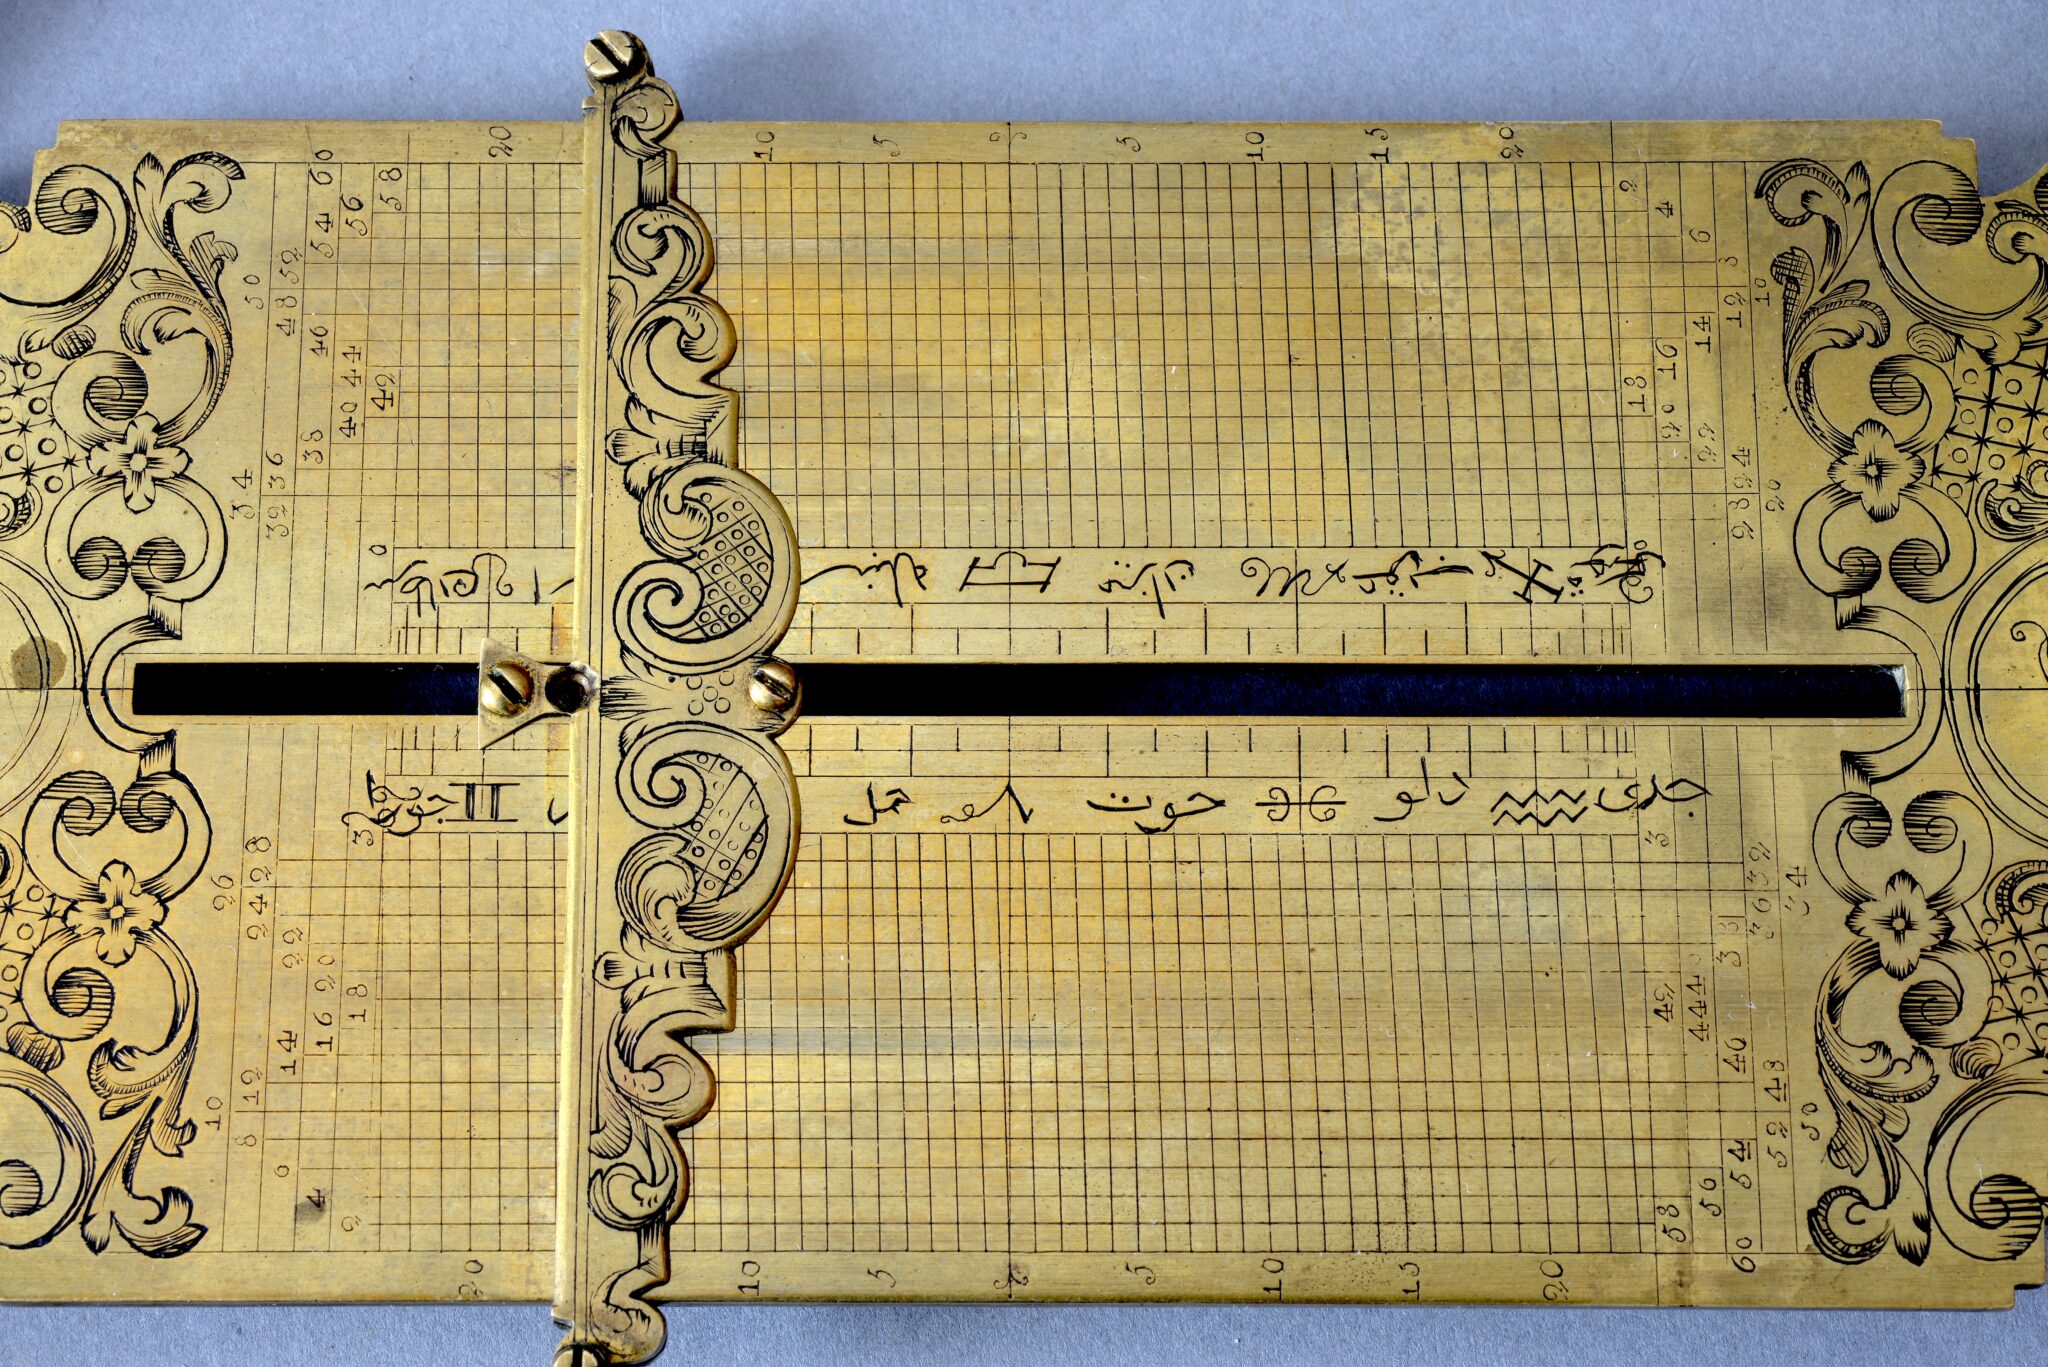 20 10 5 5 10 15 20
60 54
58
56
52 48
50
46
44 40
42
38
36 32
34
2
4
6
8
12
10
14
16
18
20
22
24 28
20
قوس عقرب ميزان سنبله سرطان
جدى دلو حوت حمل جوزا
28 24
26
22
20 16
18
14
12 8
10
6
4
2
32 36
34
38
40 44
42
46
48 52
50
54
56
58
60
20 10 5 5 10 15 20